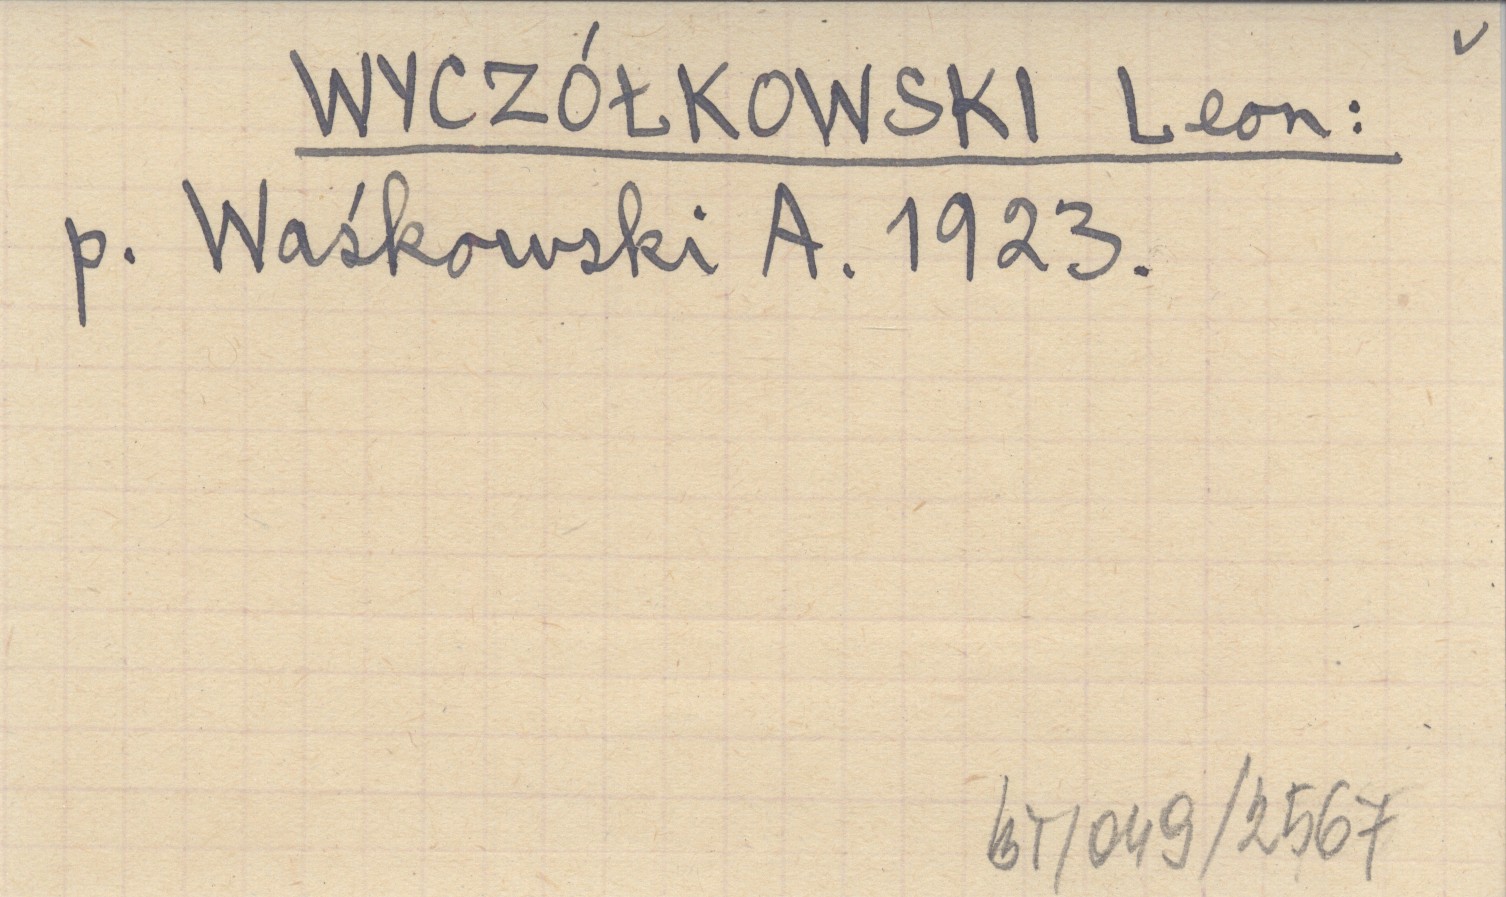 WYCZÓŁKOWSKI Leon:
p. Waśkowski A. 1923.
BT/049/2567